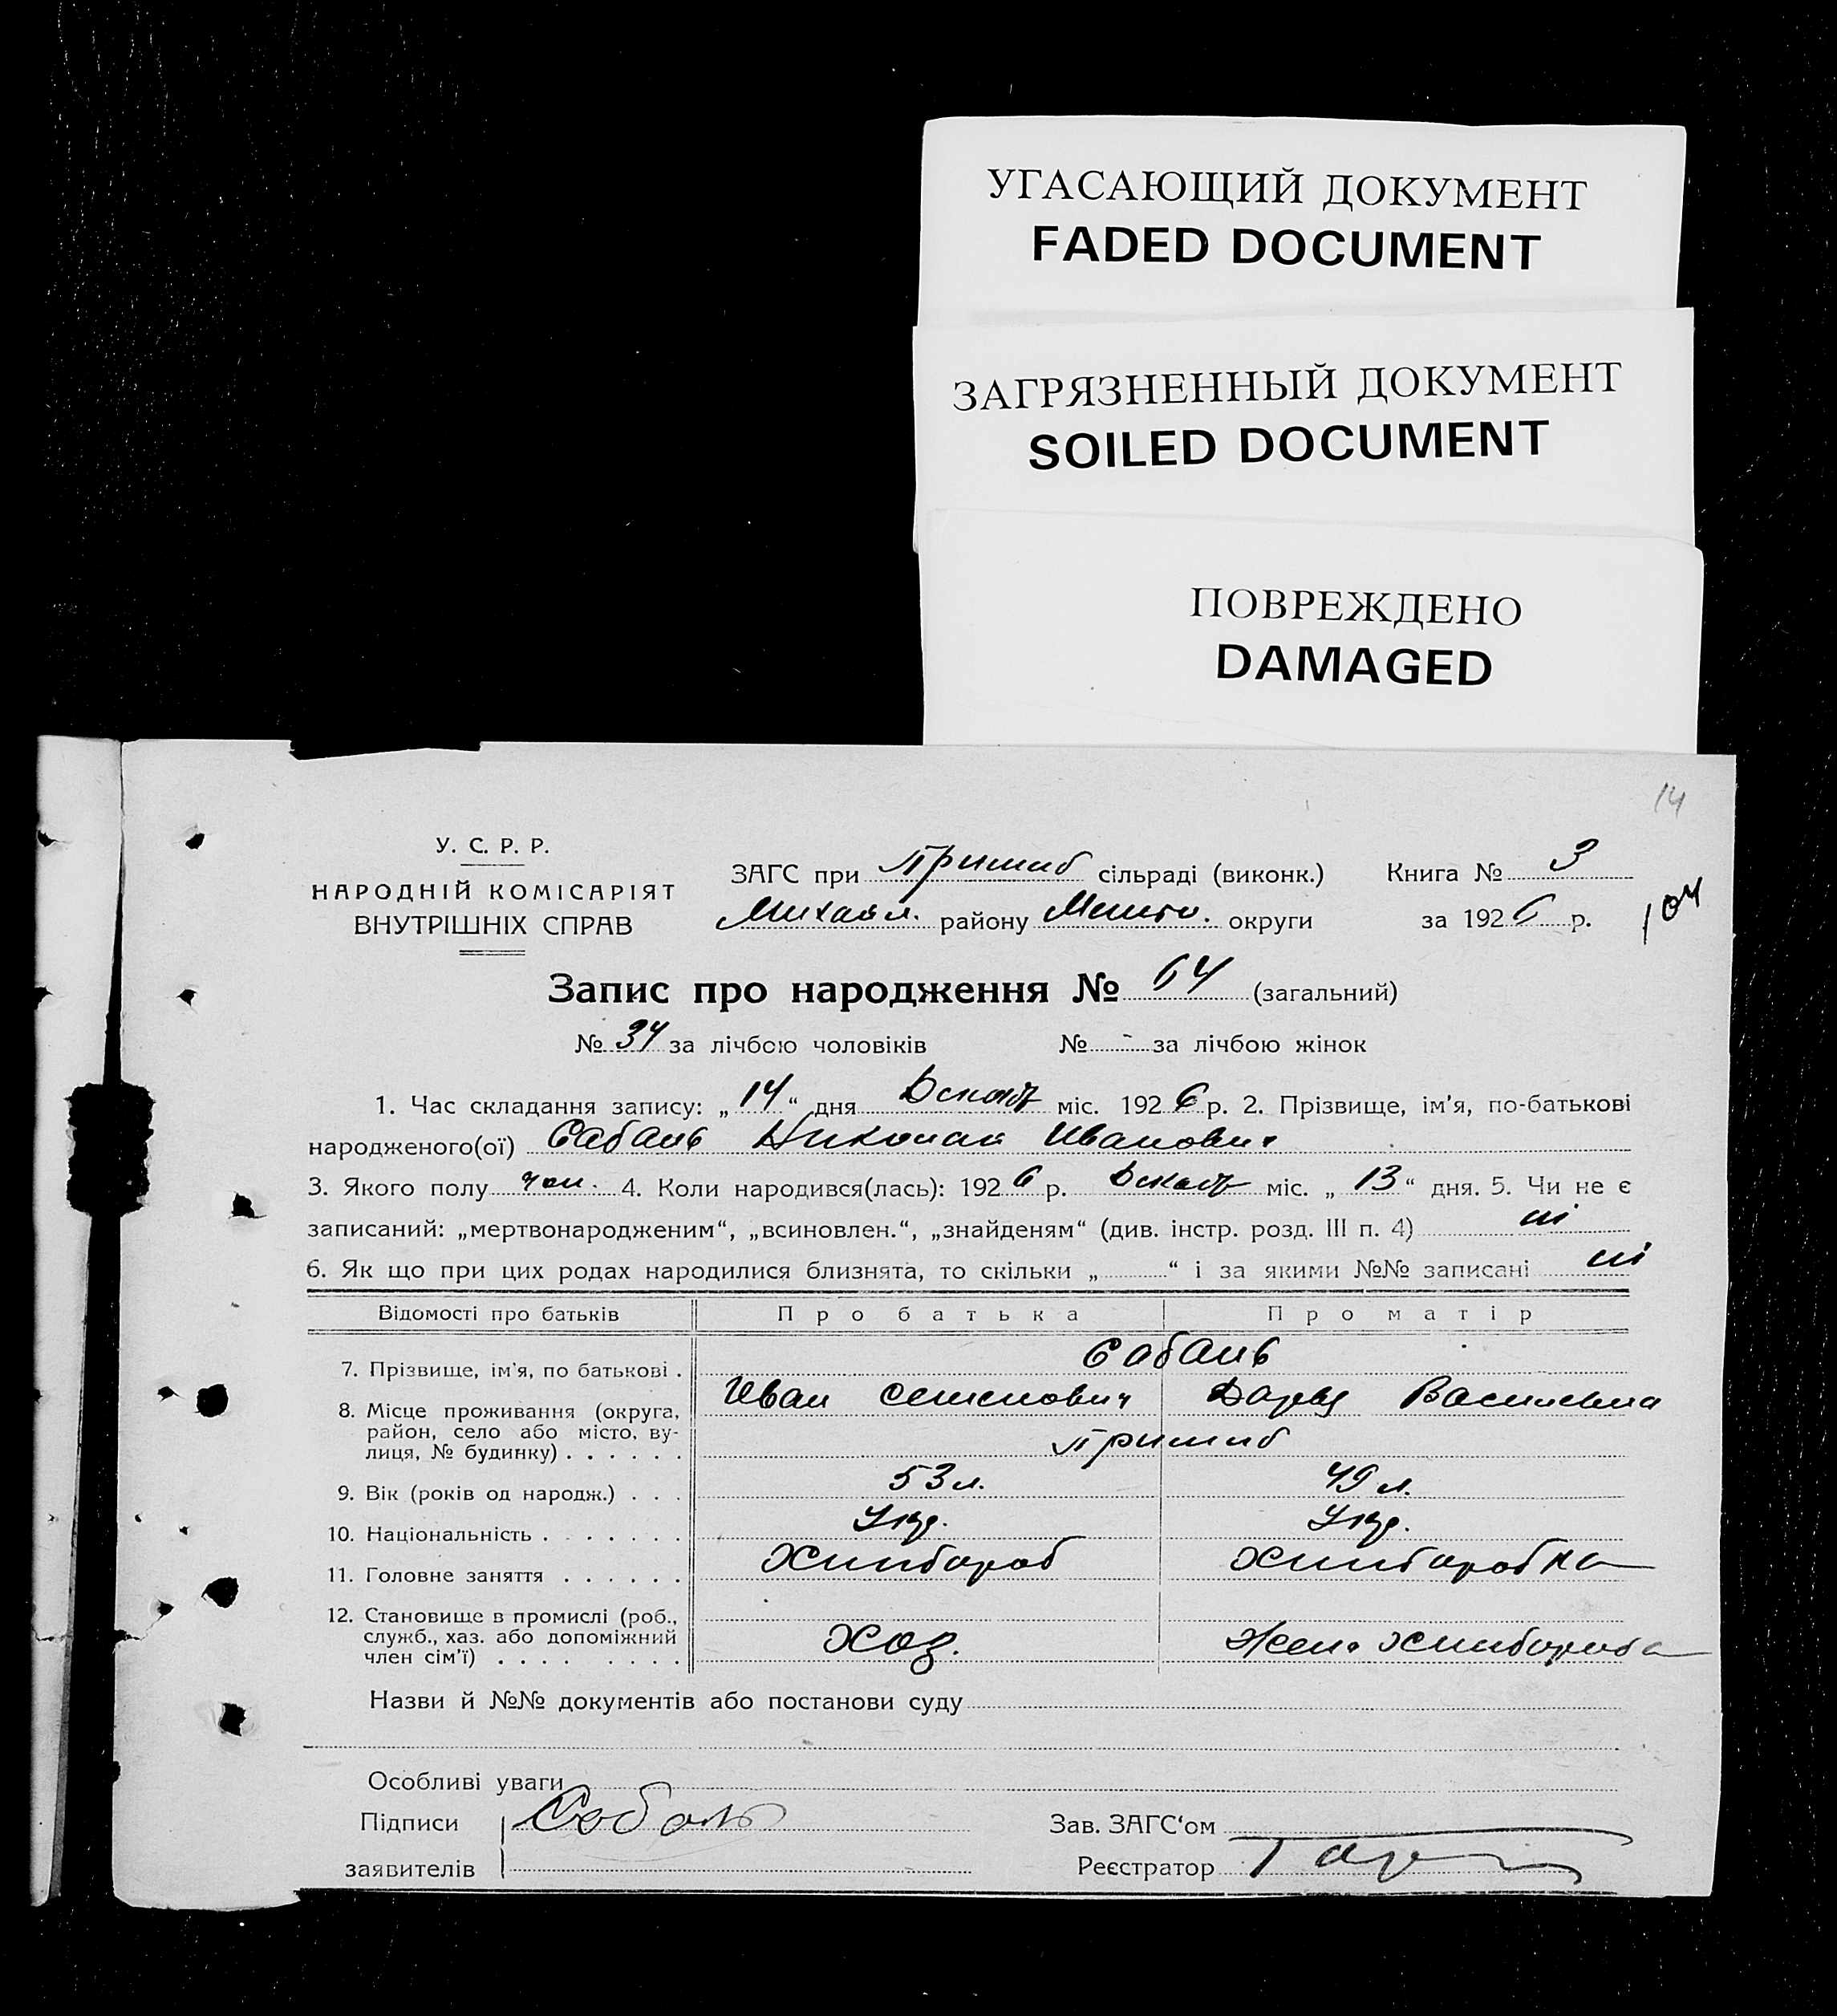 УГАСАЮЩИЙ ДОКУМЕНТ
FADED DOCUMENT
ЗАГРЯЗНЕННЫЙ ДОКУМЕНТ
SOILED DOCUMENT
ПОВРЕЖДЕНО
DAMAGED
14
У. С. Р. Р.
НАРОДНІЙ КОМІСАРІЯТ
ВНУТРІШНІХ СПРАВ
ЗАГС при Пришиб сільраді (виконк.) Книга № 3
Михайл. району Меліт. округи за 1926 р.
104
Запис про народження № 64 (загальний)
№ 34 за лічбою чоловіків № - за лічбою жінок
1. Час складання запису: „14“ дня Декабр міс. 1926 р. 2. Прізвище, ім’я, по-батькові
народженого(ої) Сабань Николай Иванович
3. Якого полу чол. 4. Коли народився(лась): 1926 р. Декабр міс. „13“ дня. 5. Чи не є
записаний: „мертвонародженим“, „всиновлен.“, „знайденям“ (див. інстр. розд. III п. 4) ні
6. Як що при цих родах народилися близнята, то скільки „ “ і за якими №№ записані ні
Відомості про батьків Про батька Про матір
7. Прізвище, ім’я, по батькові . Сабань
Иван Семенович Дарья Василевна
8. Місце проживання (округа, район, село або місто, вулиця, № будинку) . . . . . . Пришиб
9. Вік (років од народж.) . . . 53 л. 49 л.
10. Національність . . . . . . . Укр. Укр.
11. Головне заняття . . . . . . Хлибороб Хлиборобка
12. Становище в промислі (роб., служб., хаз. або допоміжний член сім’ї) . . . . . . . . Хоз. Жена хлибороба
Назви й №№ документів або постанови суду
Особливі уваги
Підписи Собань Зав. ЗАГС‘ом
заявителів Реєстратор